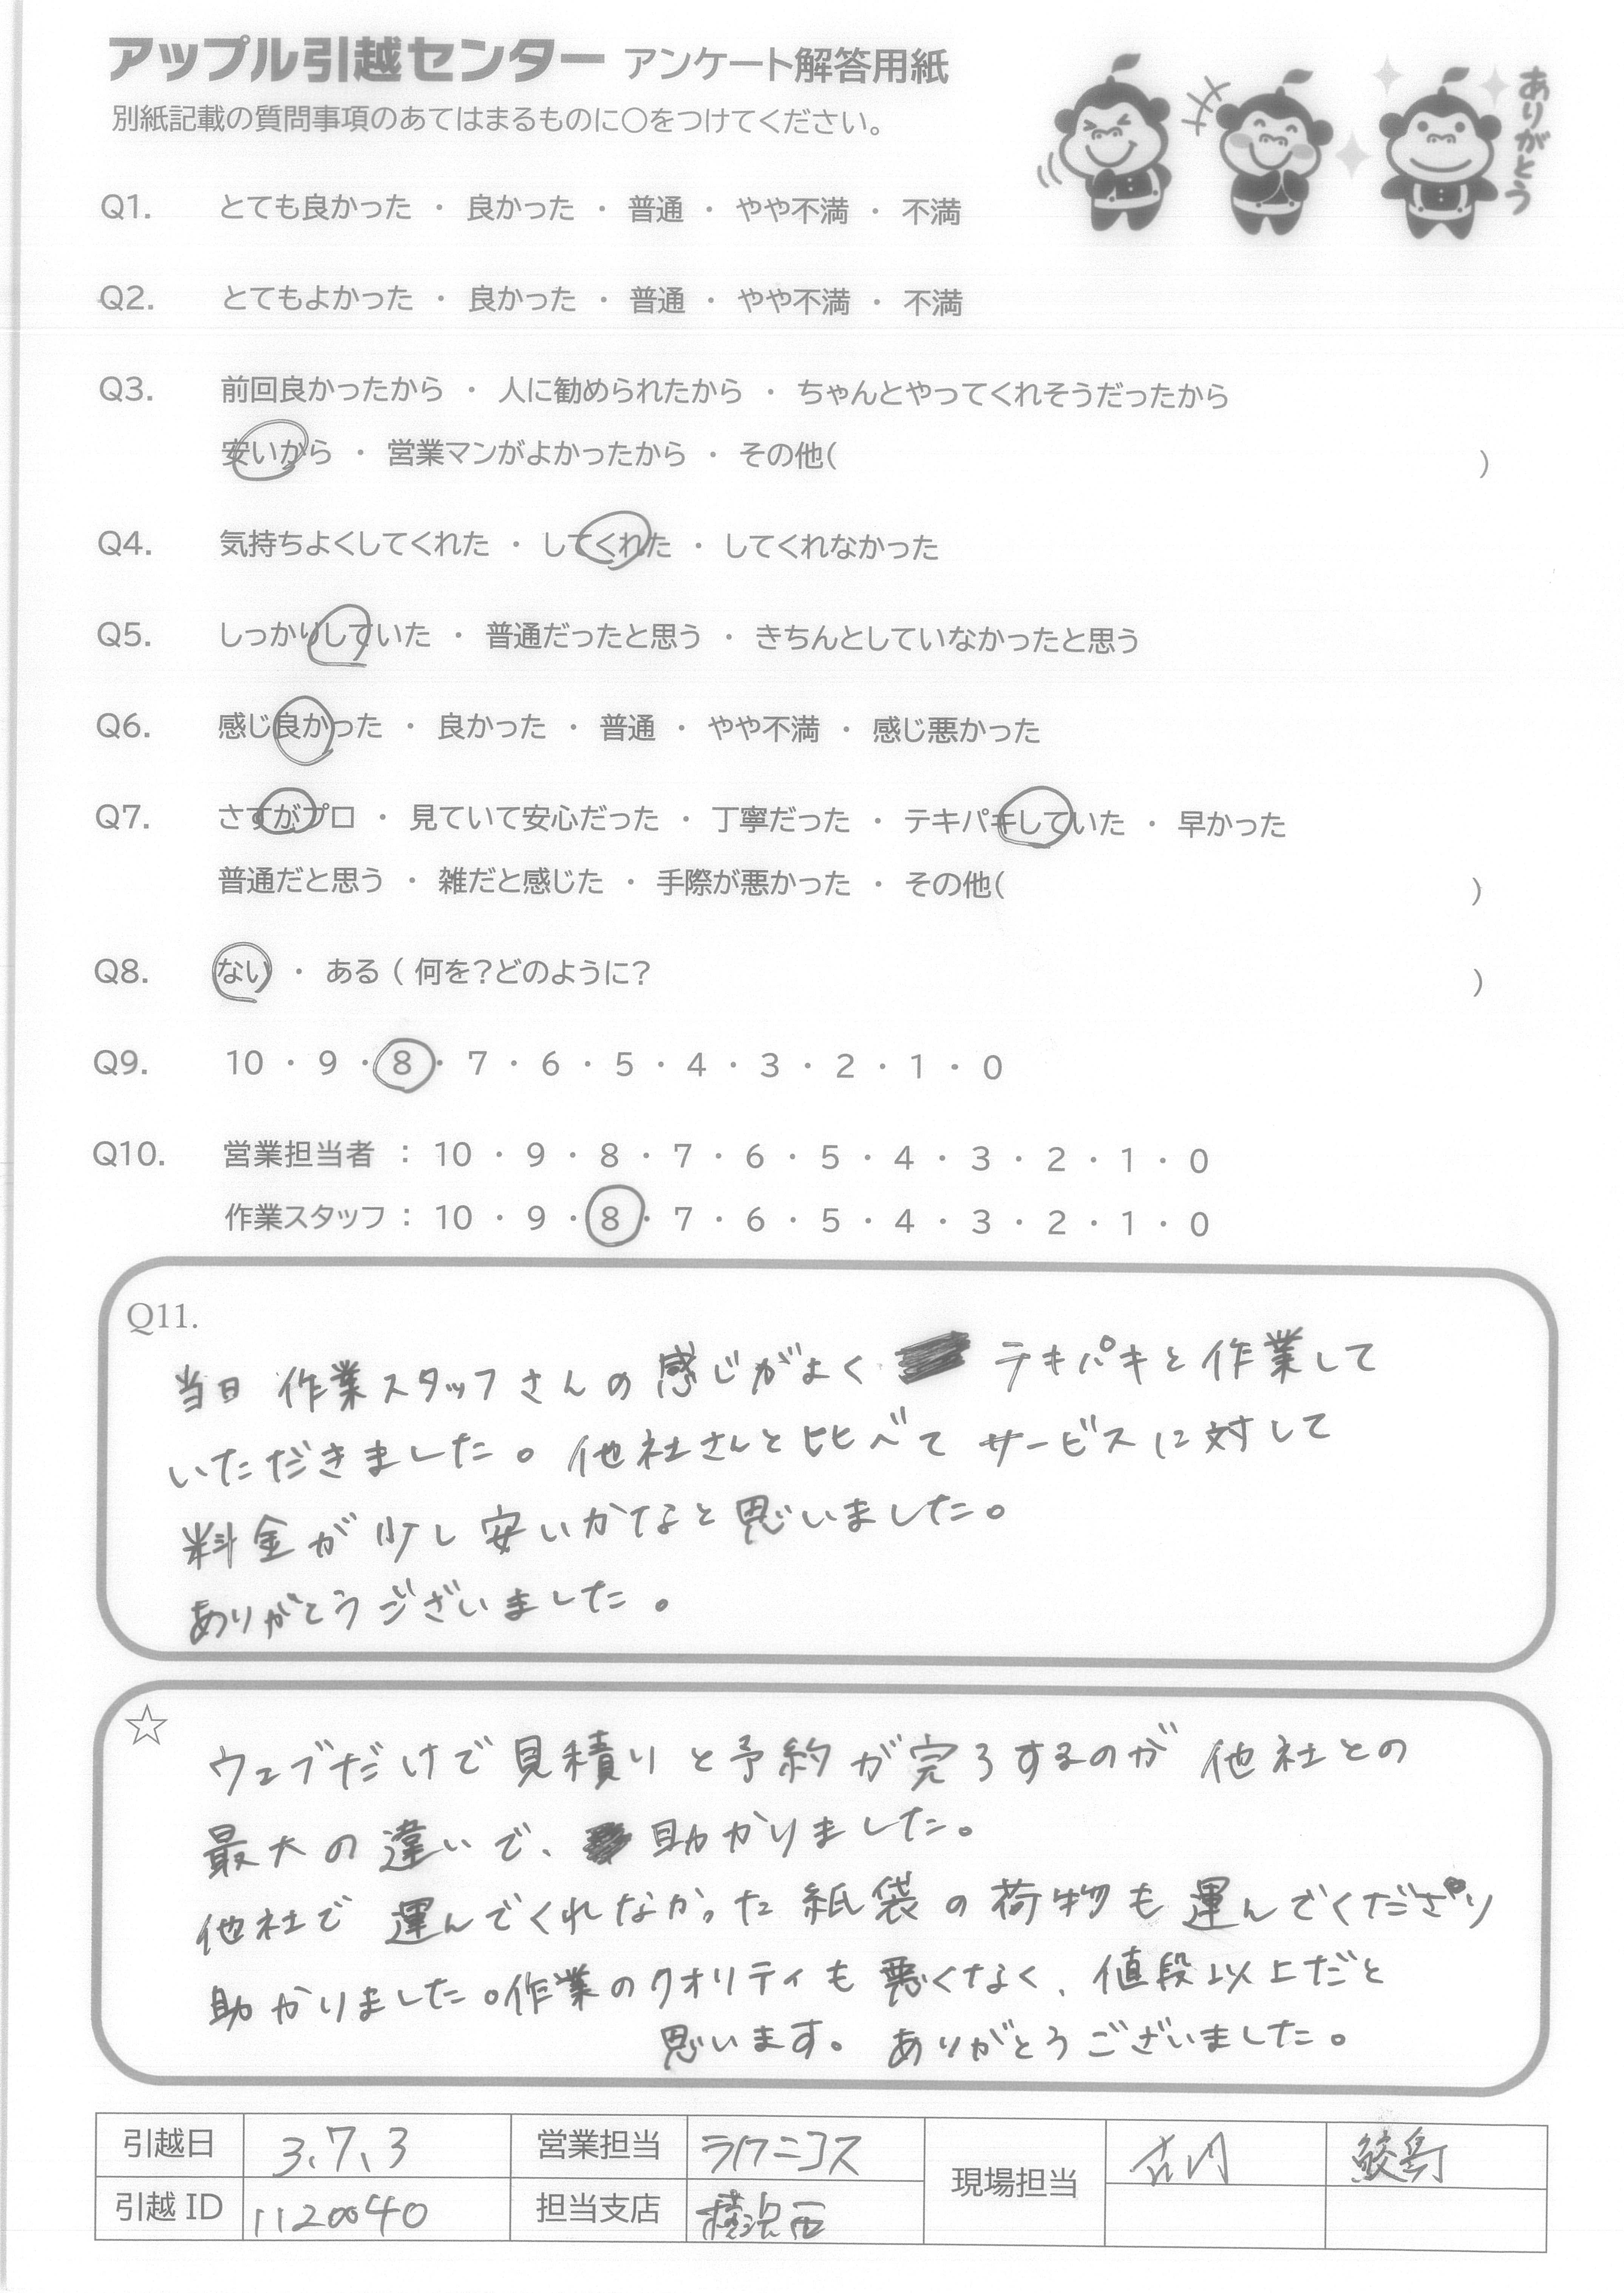 アップル引越センター アンケート解答用紙
ありがとう
別紙記載の質問事項のあてはまるものに○をつけてください。
Q1. とても良かった ・ 良かった ・ 普通 ・ やや不満 ・ 不満
Q2. とてもよかった ・ 良かった ・ 普通 ・ やや不満 ・ 不満
Q3. 前回良かったから ・ 人に勧められたから ・ ちゃんとやってくれそうだったから
安いから ・ 営業マンがよかったから ・ その他( )
Q4. 気持ちよくしてくれた ・ してくれた ・ してくれなかった
Q5. しっかりしていた ・ 普通だったと思う ・ きちんとしていなかったと思う
Q6. 感じ良かった ・ 良かった ・ 普通 ・ やや不満 ・ 感じ悪かった
Q7. さすがプロ ・ 見ていて安心だった ・ 丁寧だった ・ テキパキしていた ・ 早かった
普通だと思う ・ 雑だと感じた ・ 手際が悪かった ・ その他( )
Q8. ない ・ ある ( 何を?どのように? )
Q9. 10 ・ 9 ・ 8 ・ 7 ・ 6 ・ 5 ・ 4 ・ 3 ・ 2 ・ 1 ・ 0
Q10. 営業担当者 : 10 ・ 9 ・ 8 ・ 7 ・ 6 ・ 5 ・ 4 ・ 3 ・ 2 ・ 1 ・ 0
作業スタッフ : 10 ・ 9 ・ 8 ・ 7 ・ 6 ・ 5 ・ 4 ・ 3 ・ 2 ・ 1 ・ 0
Q11.
当日 作業スタッフさんの感じがよく テキパキと作業して
いただきました。他社さんと比べてサービスに対して
料金が少し安いかなと思いました。
ありがとうございました。
☆
ウェブだけで見積りと予約が完了するのが他社との
最大の違いで、助かりました。
他社で運んでくれなかった紙袋の荷物も運んでくださり
助かりました。作業のクオリティも悪くなく、値段以上だと
思います。ありがとうございました。
引越日 3、7、3 営業担当 ラクニコス 現場担当 古内 鮫島
引越 ID 1120040 担当支店 横浜西